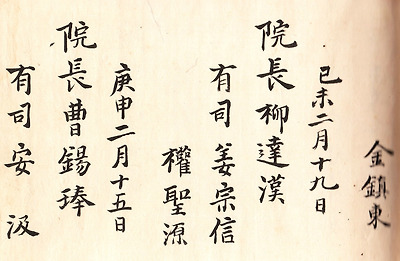 金鎭東
己未二月十九日
院長柳達漢
有司姜宗信
權聖源
庚申二月十五日
院長曺錫琫
有司安汲